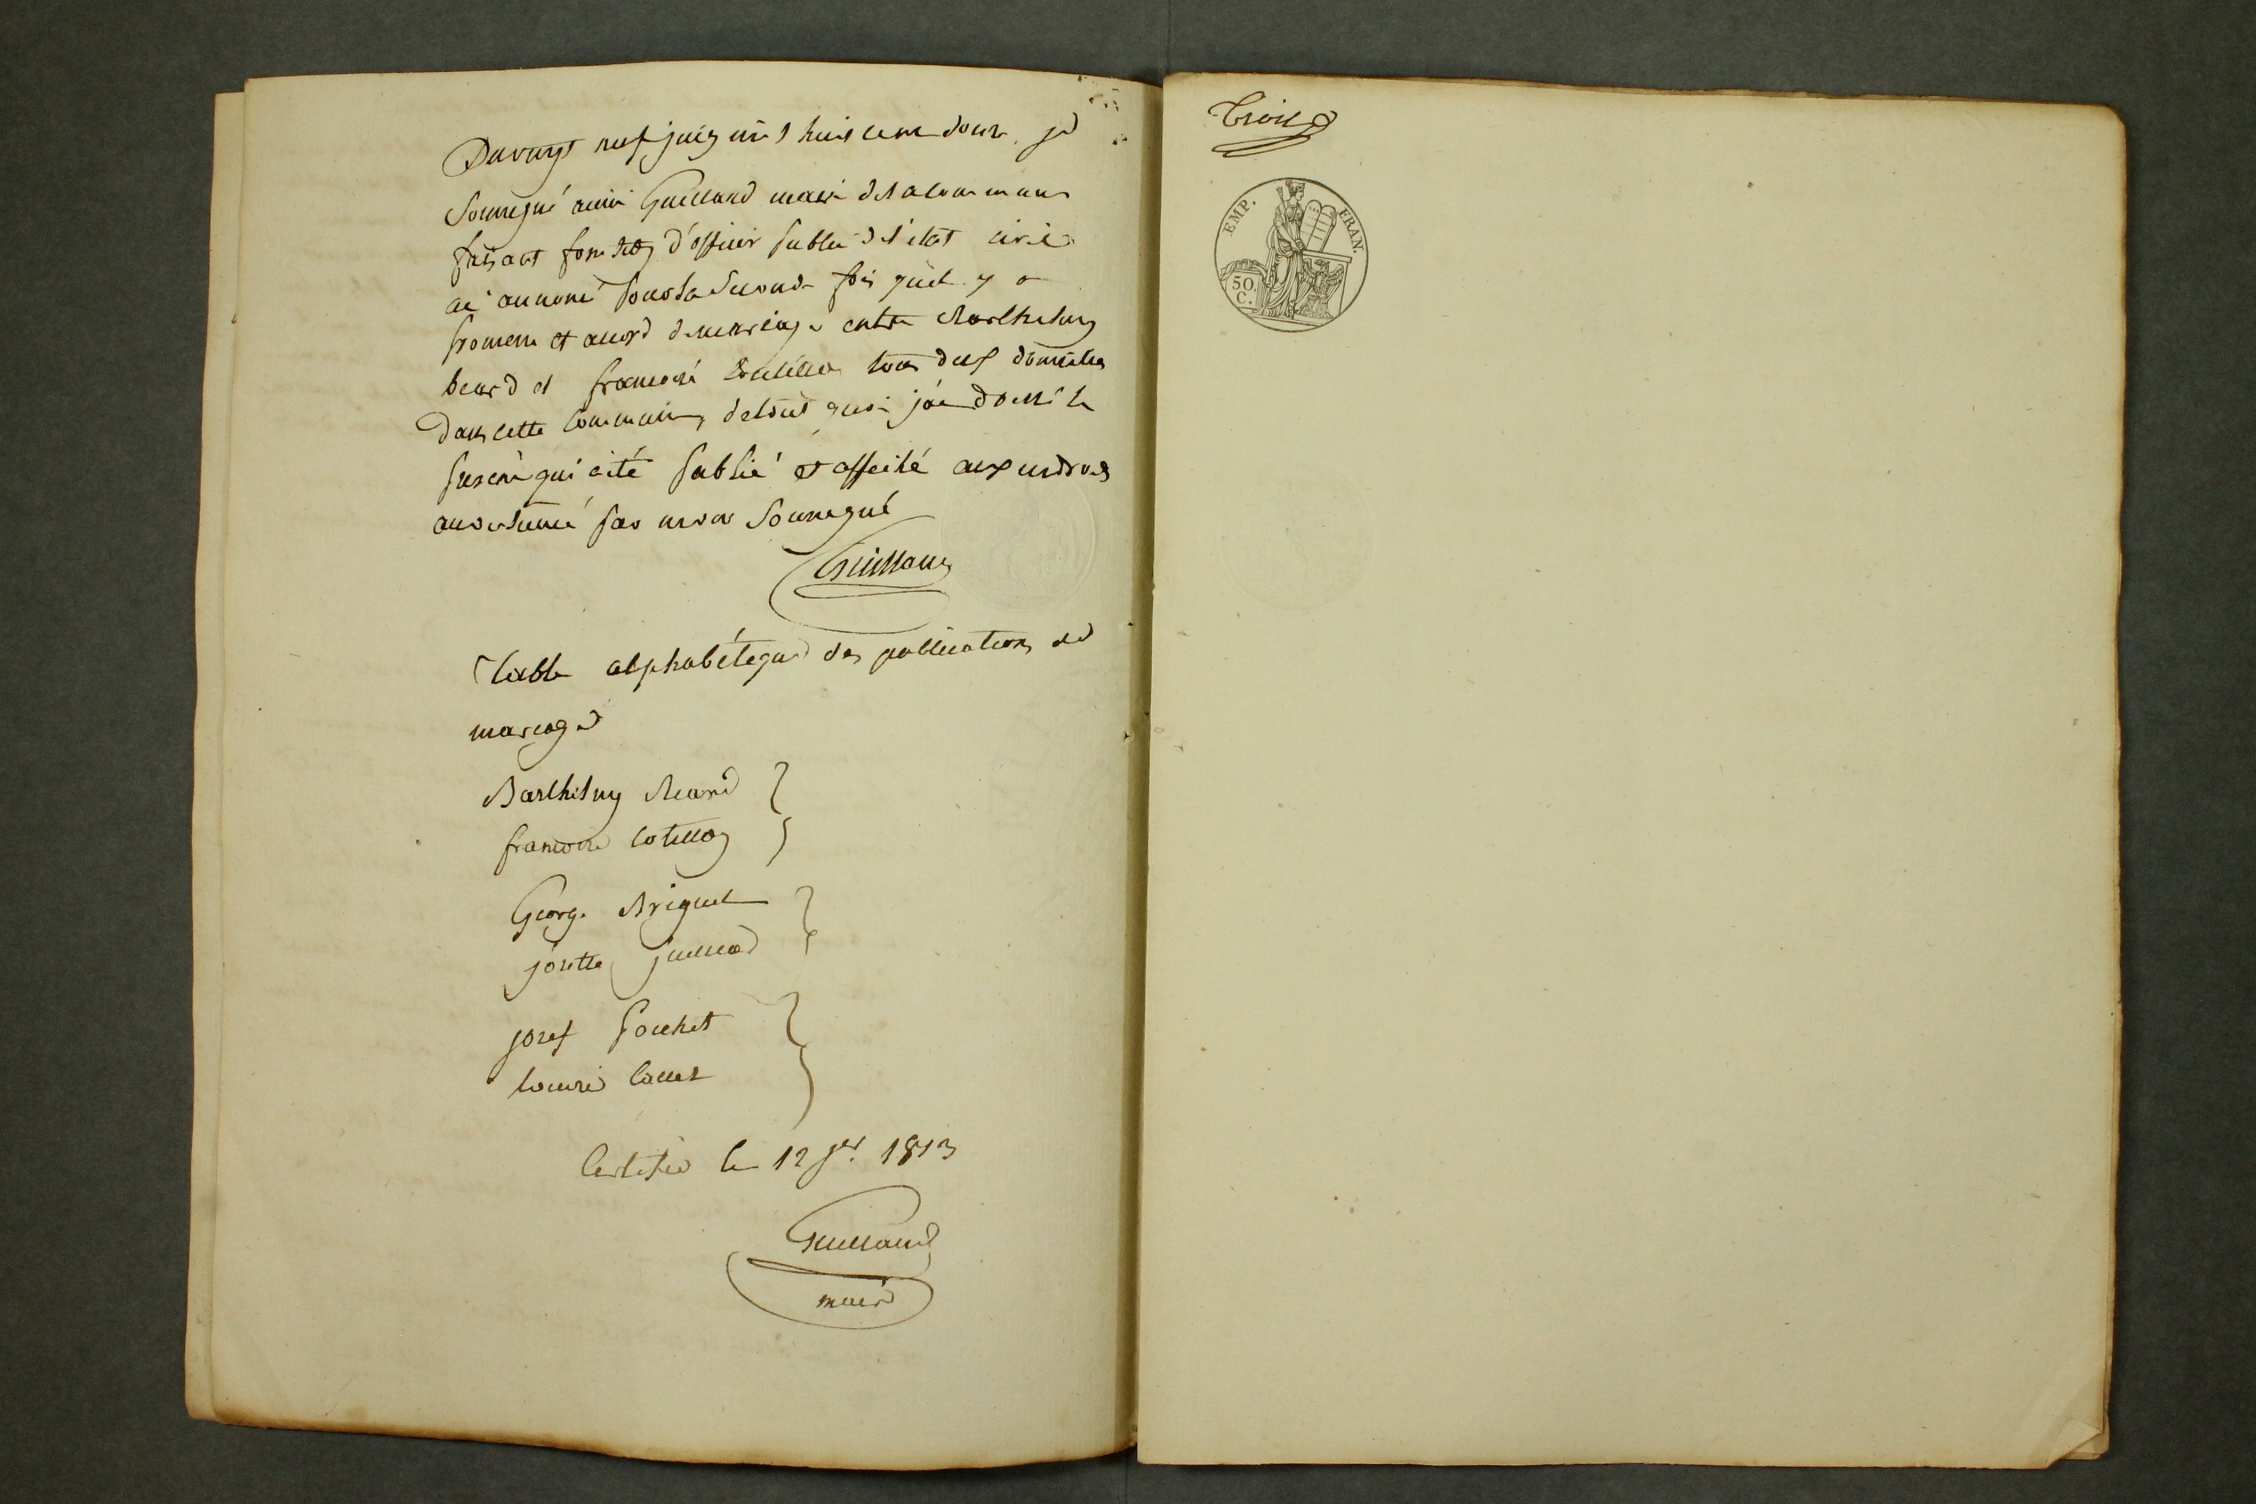 Du vingt neuf juin mil huit cent douze je
Soussigné aimé Guilland maire de la commune
faisant fonction d'officier public de l'etat civil
ai annoncé pour la seconde fois quil y a
promesse et accord de mariage entre Barthelmy
beard et francoise Cotillon tous deux domicilies
dans cette commune, de tout quoi j'ai dressé le
present qui a été publié et affiché aux endroits
accoutumé par moi Soussigné
Guilland
Table alphabétique des publications de
mariage
Barthelmy Beard }
francoise Cotillon }
George Briguet }
josette Guilland }
josef pochet }
louise Collet }
Certifié le 12 jer 1813
Guilland
maire
trois
EMP. FRAN.
50
C.